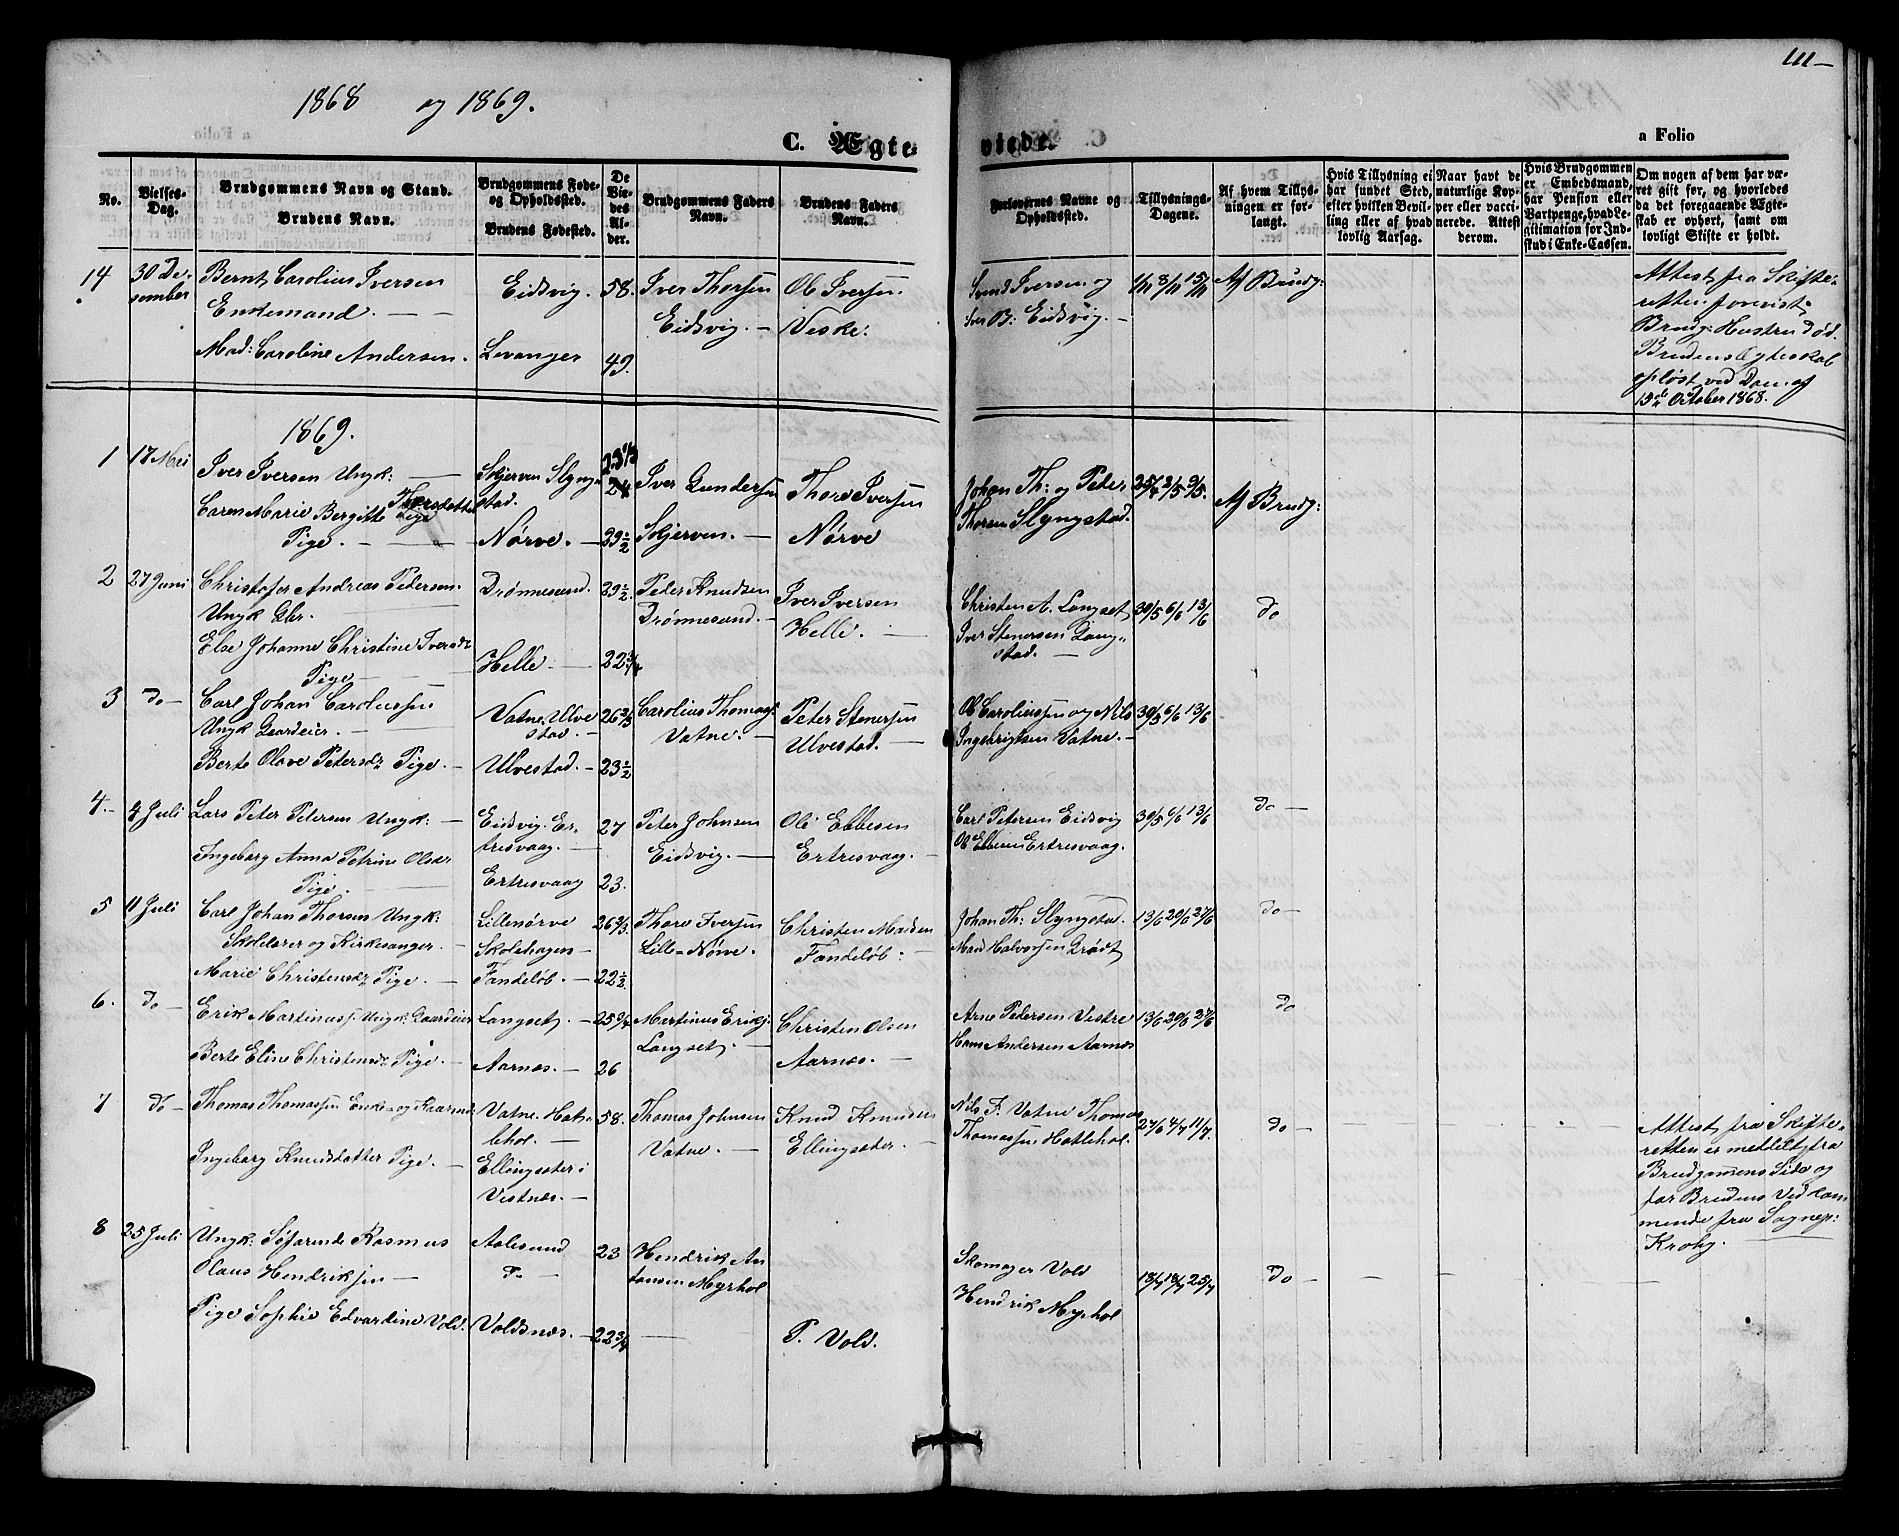 1868 og 1869.
111
C. Ægte-
viede.
a Folio
No.
Vielses-
Dag.
Brudgommens Navn og Stand.
Brudens Navn.
Brudgommens Føde-
og Opholdssted.
Brudens Fødested.
De
Vie-
des
Al-
der.
Brudgommens Faders
Navn.
Brudens Faders
Navn.
Forlovernes Navne og
Opholdssted.
Tillysnings-
Dagene.
Af hvem Tillys-
ningen er for-
langt.
Hvis Tillysning ei
har fundet Sted,
efter hvilken Bevil-
ling eller af hvad
lovlig Aarsag.
Naar havt de
naturlige Kop-
per eller vacci-
nerede. Attest
derom.
Hvis Brudgommen
er Embedsmand,
har Pension eller
Vartpenge, hvad Le-
gitimation for Ind-
skud i Enke-Cassen.
Om nogen af dem har væ-
ret gift før, og hvorledes
da det foregaaende Ægte-
skab er ophørt, samt om
lovligt Skifte er holdt.
14
30 De-
sember
Bernt Carolius Iversen
Enkemand.
Mad: Caroline Andersen.
Eidsvig.
Levanger
58.
49.
Iver Thorsen
Eidsvig.
Ole Iversen
Veske.
Svend Iversen og
Iver B: Eidsvig.
1/11 8/11 15/11
Af Brudg:
Attest fra Skifte-
retten forevist
Brudg: Hustru død.
Brudens Ægteskab
opløst ved Dom af
15de October 1868.
1869.
1
17 Mai
Iver Iversen Ungk:
Caren Marie Bergitte Thoresdatter
Pige.
Skjerven Slyng-
stad.
Nørve.
24
29½
Iver Gundersen
Skjerven.
Thore Iversen
Nørve
Johan Th: og Peder
Thorsen Slyngstad.
25/4 2/5 9/5.
Af Brudg:
2
27 Juni
Christofer Andreas Pedersen.
Ungk Gbr.
Else Johanne Christine Iversdr
Pige
Drønnesund.
Helle.
29½.
22¾
Peder Knudsen
Drønnesund.
Iver Iversen
Helle.
Christen A. Longset
Iver Stenersen Long-
stad.
30/5 6/6 13/6
Do
3
Do
Carl Johan Caroliussen
Ungk Gaardeier.
Berte Olave Petersdr Pige.
Vatne. Ulve
stad.
Ulvestad.
26⅔
23½
Carolius Thomass.
Vatne.
Peter Stenersen
Ulvestad.
Ole Caroliussen og Nils
Ingebrigtsen Vatne.
30/5 6/6 13/6
4.
4 Juli
Lars Peter Petersen Ungk:
Ingeborg Anna Petrine Olsdr
Pige.
Eidsvig. Er-
tresvaag.
Ertresvaag
27
23.
Peter Johnsen
Eidsvig.
Ole Ebbesen
Ertresvaag.
Carl Petersen Eidsvig
Ole Ebbesen Ertresvaag.
30/5 6/6 13/6
Do
5
11 Juli
Carl Johan Thorsen Ungk:
Skolelærer og Kirkesanger.
Marie Christensdr Pige.
Lillenørve
Skolehagen
Fandeløb.
26⅔.
22½.
Thore Iversen
Lille-Nørve.
Christen Madsen
Fandeløb.
Johan Th: Slyngstad.
Mad Halvorsen Grødt
13/6 20/6 27/6
Do
6.
Do
Erik Martinuss. Ungk: Gaardeier
Berte Eline Christensdr Pige.
Longset.
Aarnæs.
25¾
26
Martinus Eriks.
Longset.
Christen Olsen
Aarnæs.
Arne Pedersen Vestre
Hans Andersen Aarnæs
13/6 20/6 27/6
Do
7
Do
Thomas Thomassen Enke- og Kaarmd
Ingeborg Knudsdatter Pige.
Vatne. Hat-
lehol.
Ellingsæter i
Vestnæs.
58.
Thomas Johnsen
Vatne.
Knud Knudsen
Ellingsæter
Nils J. Vatne Thomas
Thomassen Hatlehol.
27/6 4/7 11/7.
Do
Attest fra Skifte-
retten er meddelt fra
Brudgommens Side og
for Brudens Vedkom-
mende fra Sognep:
Krohg.
8
25 Juli
Ungk: Søfarende Rasmus
Olaus Hendriksen
Pige Sophie Edvardine Vold.
Aalesund
Do
Voldsnæs.
23
22¾
Hendrik An-
tonsen Myrhol
P. Vold.
Skomager Vold
Hendrik Myrhol
13/7 18/7 25/7
Do